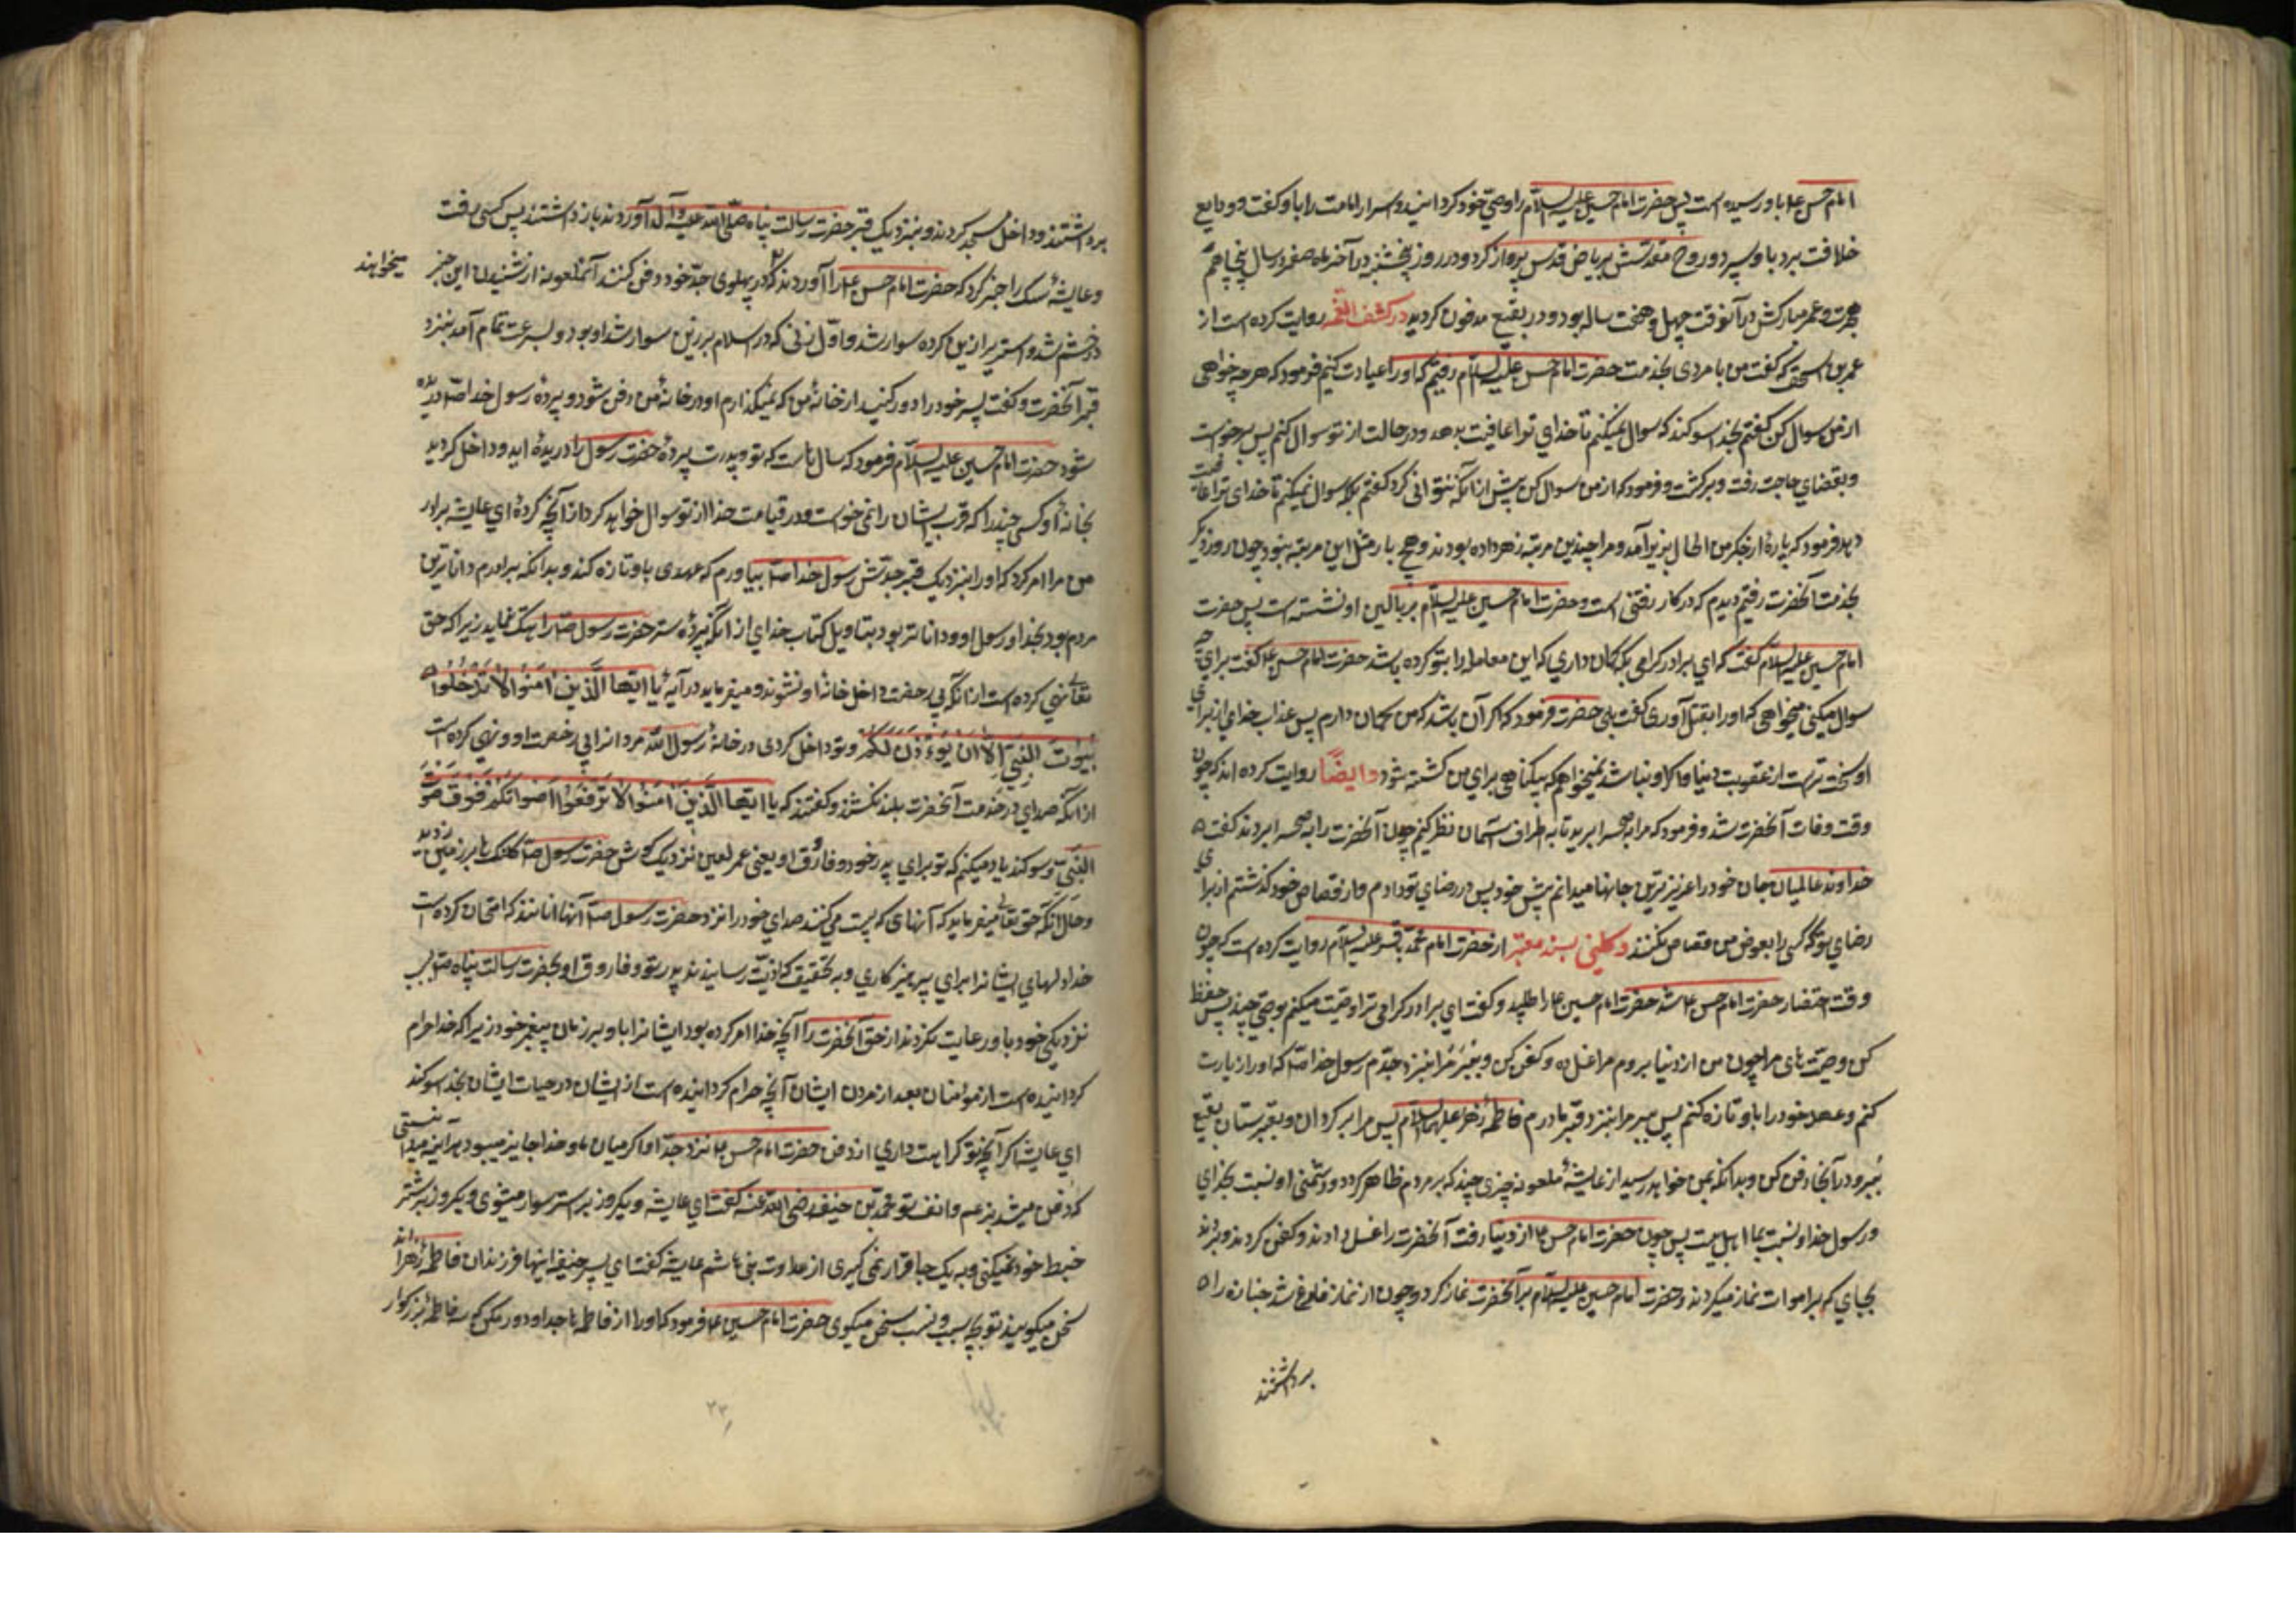 امام حسن ع باو رسیده است پس حضرت امام حسین علیه السلام را وصی خود کردانید و اسرار امامت را باو کفت و ودایع
خلافت برد باو سپرد و روح مقدسش بریاض قدس پرواز کرد و در روز پنجشنبه در آخر ماه صفر در سال پنجاهم
هجرت و عمر مبارکش در آنوقت چهل و هفت ساله بود و در بقیع مدفون کردید در کشف الغمه روایت کرده است از
عمر بن اسحق که کفت من با مردی بخدمت حضرت امام حسن علیه السلام رفتیم که او را عیادت کنیم فرمود که هر چه خواهی
از من سوال کن کفتم بخدا سوکند که سوال نمیکنم تا خدای ترا عافیت بدهد و در حالت از تو سوال کنم پس برخواست
و بقضای حاجت رفت و برکشت و فرمود که از من سوال کن پیش از آنکه نتوانی کرد کفتم بلکه سوال نمیکنم تا خدای ترا عافیت
دهد فرمود که پارهٔ از جکر من الحال بزیر آمد و مرا چندین مرتبه زهر داده بودند و هیچ بار مثل این مرتبه نبود چون روز دیکر
بخدمت آنحضرت رفتم دیدم که در کار رفتنی است و حضرت امام حسین علیه السلام بر بالین او نشسته است پس حضرت
امام حسین علیه السلام کفت که ای برادر کرامی بکه کمان داری که این معامله را بتو کرده باشد حضرت امام حسن ع کفت برای چه
سوال میکنی میخواهی که او را بقتل آوری کفت بلی حضرت فرمود که اکر آن باشد که من کمان دارم پس عذاب خدای از برای
او سخت تر است از عقوبت دنیا و اکر او نباشد نمیخواهم که بیکناهی برای من کشته شود و ایضاً روایت کرده اند که چون
وقت وفات آنحضرت شد و فرمود که مرا بصحرا برید تا به اطراف آسمان نظر کنم چون آنحضرت را به صحرا بردند کفت
خداوند عالمیان جان خود را عزیزترین جانها میدانم پیش خود پس در رضای تو دادم و از قصاص خود کذشتم از برای
رضای تو که کسی را بعوض من قصاص نکنند و کلینی بسند معتبر از حضرت امام محمد باقر علیه السلام روایت کرده است که چون
وقت احتضار حضرت امام حسن ع شد حضرت امام حسین ع را طلبید و کفت ای برادر کرامی ترا وصیت میکنم بوصیتی چند پس حفظ
کن وصیت های مرا چون من از دنیا بروم مرا غسل ده و کفن کن و ببر مرا بنزد جدم رسول خدا ص که او را زیارت
کنم و عهد خود را باو تازه کنم پس ببر مرا بنزد قبر مادرم فاطمه زهرا علیها السلام پس مرا برکردان و بقبرستان بقیع
ببر و در آنجا دفن کن و بدانکه بمن خواهد رسید از عایشهٔ ملعونه چیزی چند که بر مردم ظاهر کردد دشمنی او نسبت بخدای
و رسول خدا و نسبت بما اهل بیت پس چون حضرت امام حسن ع از دنیا رفت آنحضرت را غسل دادند و کفن کردند و بردند
بجای که بر اموات نماز میکردند و حضرت امام حسین علیه السلام بر آنحضرت نماز کرد و چون از نماز فارغ شد جنازه را
برداشتند
برداشتند و داخل مسجد کردند و بنزدیک قبر حضرت رسالت پناه صلی الله علیه و آله آوردند باز داشتند پس کسی رفت
و عایشهٔ سک را خبر کرد که حضرت امام حسن ع را آوردند که در پهلوی جد خود دفن کنند آنملعونه از شنیدن این خبر
میخواهند
در خشم شد و استری را زین کرده سوار شد و اول زنی که در اسلام بر زین سوار شد او بود و بسرعت تمام آمد بنزد
قبر آنحضرت و کفت پسر خود را دور کنید از خانهٔ من که نمیکذارم او در خانهٔ من دفن شود و پردهٔ رسول خدا ص دریده
شود حضرت امام حسین علیه السلام فرمود که سالهاست که تو و پدرت پردهٔ حضرت رسول را دریدهٔ اید و داخل کردید
بخانهٔ او کسی چند را که قرب ایشان را نمی خواست و در قیامت خدا از تو سوال خواهد کرد از آنچه کردهٔ ای عایشه برادر
من مرا امر کرد که او را بنزدیک قبر جدش رسول خدا ص بیاورم که عهدی باو تازه کند و بدانکه برادرم داناترین
مردم بود بخدا و رسول او و داناتر بود بتاویل کتاب خدای از آنکه پردهٔ ستر حضرت رسول ص را هتک نماید زیرا که حق
تعالی نهی کرده است از آنکه بی رخصت داخل خانهٔ او نشوند و میفرماید در آیهٔ یا ایها الذین امنوا لا تدخلوا
بیوت النبی الا ان یوءذن لکم و تو داخل کردی در خانهٔ رسول الله مردانرا بی رخصت او و نهی کرده است
از آنکه صدای در خدمت آنحضرت بلند نکنند و کفتند که یا ایها الذین امنوا لا ترفعوا اصواتکم فوق صوت
النبی و سوکند یاد میکنم که تو برای پدر خود و فاروق او یعنی عمر لعین نزدیک کوش حضرت رسول ص کلنک ها بر زمین زدید
و حال آنکه حق تعالی میفرماید که آنهای که پست می کنند صدای خود را نزد حضرت رسول ص آنها آنانند که امتحان کرده است
خدا دلهای ایشانرا برای پرهیزکاری و به تحقیق که اذیت رسانیدند پدر تو و فاروق او بحضرت رسالت پناه ص بسبب
نزدیکی خود باو رعایت نکردند از حق آنحضرت را آنچه خدا امر کرده بود ایشانرا باو بر زبان پیغمبر خود زیرا که خدا حرام
کردانیده است از مؤمنان بعد از مردن ایشان آنچه حرام کردانیده است از ایشان در حیات ایشان بخدا سوکند
ای عایشه اکر آنچه تو کراهت داری از دفن حضرت امام حسن ع نزد جد او اکر میان ما و خدا جایز میبود هر آینه میدانستی
که دفن میشد برغم و انف تو محمد بن حنیفه رضی الله عنه کفت ای عایشه و یکروز بر استر سوار میشوی و یکروز بر شتر
ضبط خود نمیکنی و به یک جا قرار نمی کیری از عداوت بنی هاشم عایشه کفت ای پسر حنیفه اینها فرزندان فاطمه زهرا اند
سخن میکویند تو بچه سبب و نسب سخن میکوی حضرت امام حسین ع فرمود که او را از فاطمه ها جدا و دور مکن که سه فاطمهٔ بزرکوار
۲۳۰